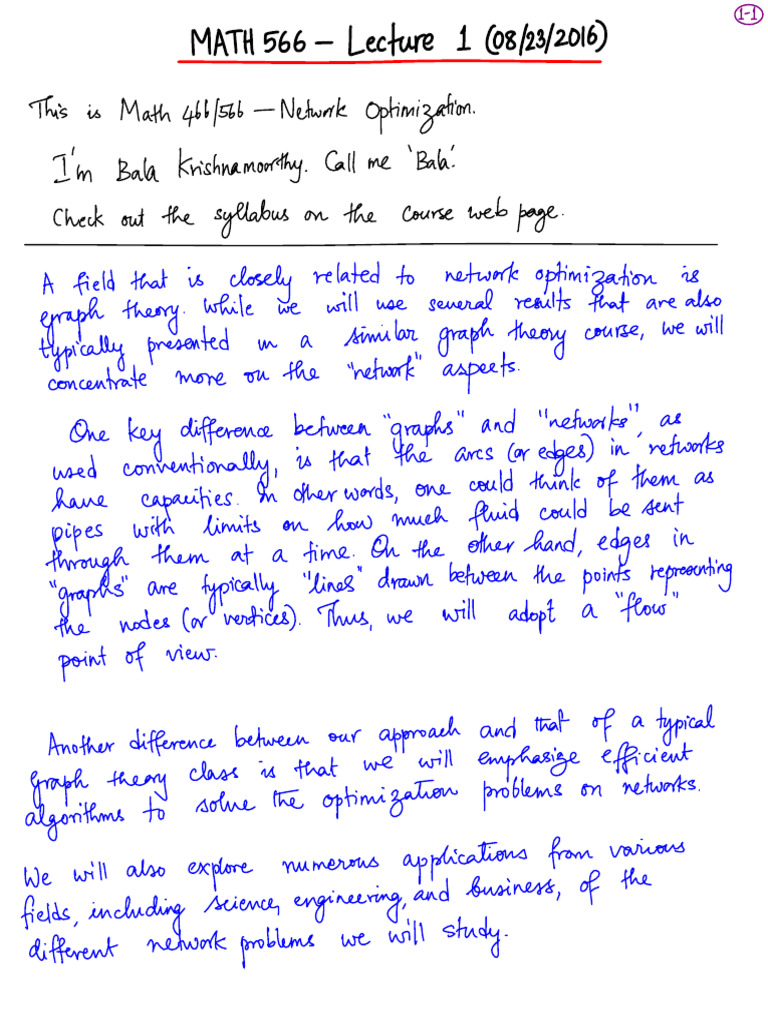 1-1
MATH 566 - Lecture 1 (08/23/2016)
This is Math 466/566 — Network Optimization.
I'm Bala Krishnamoorthy. Call me 'Bala'.
Check out the syllabus on the course web page.
A field that is closely related to network optimization is
graph theory. While we will use several results that are also
typically presented in a similar graph theory course, we will
concentrate more on the "network" aspects.
One key difference between "graphs" and "networks", as
used conventionally, is that the arcs (or edges) in networks
have capacities. In other words, one could think of them as
pipes with limits on how much fluid could be sent
through them at a time. On the other hand, edges in
"graphs" are typically "lines" drawn between the points representing
the nodes (or vertices). Thus, we will adopt a "flow"
point of view.
Another difference between our approach and that of a typical
graph theory class is that we will emphasize efficient
algorithms to solve the optimization problems on networks.
We will also explore numerous applications from various
fields, including science, engineering, and business, of the
different network problems we will study.